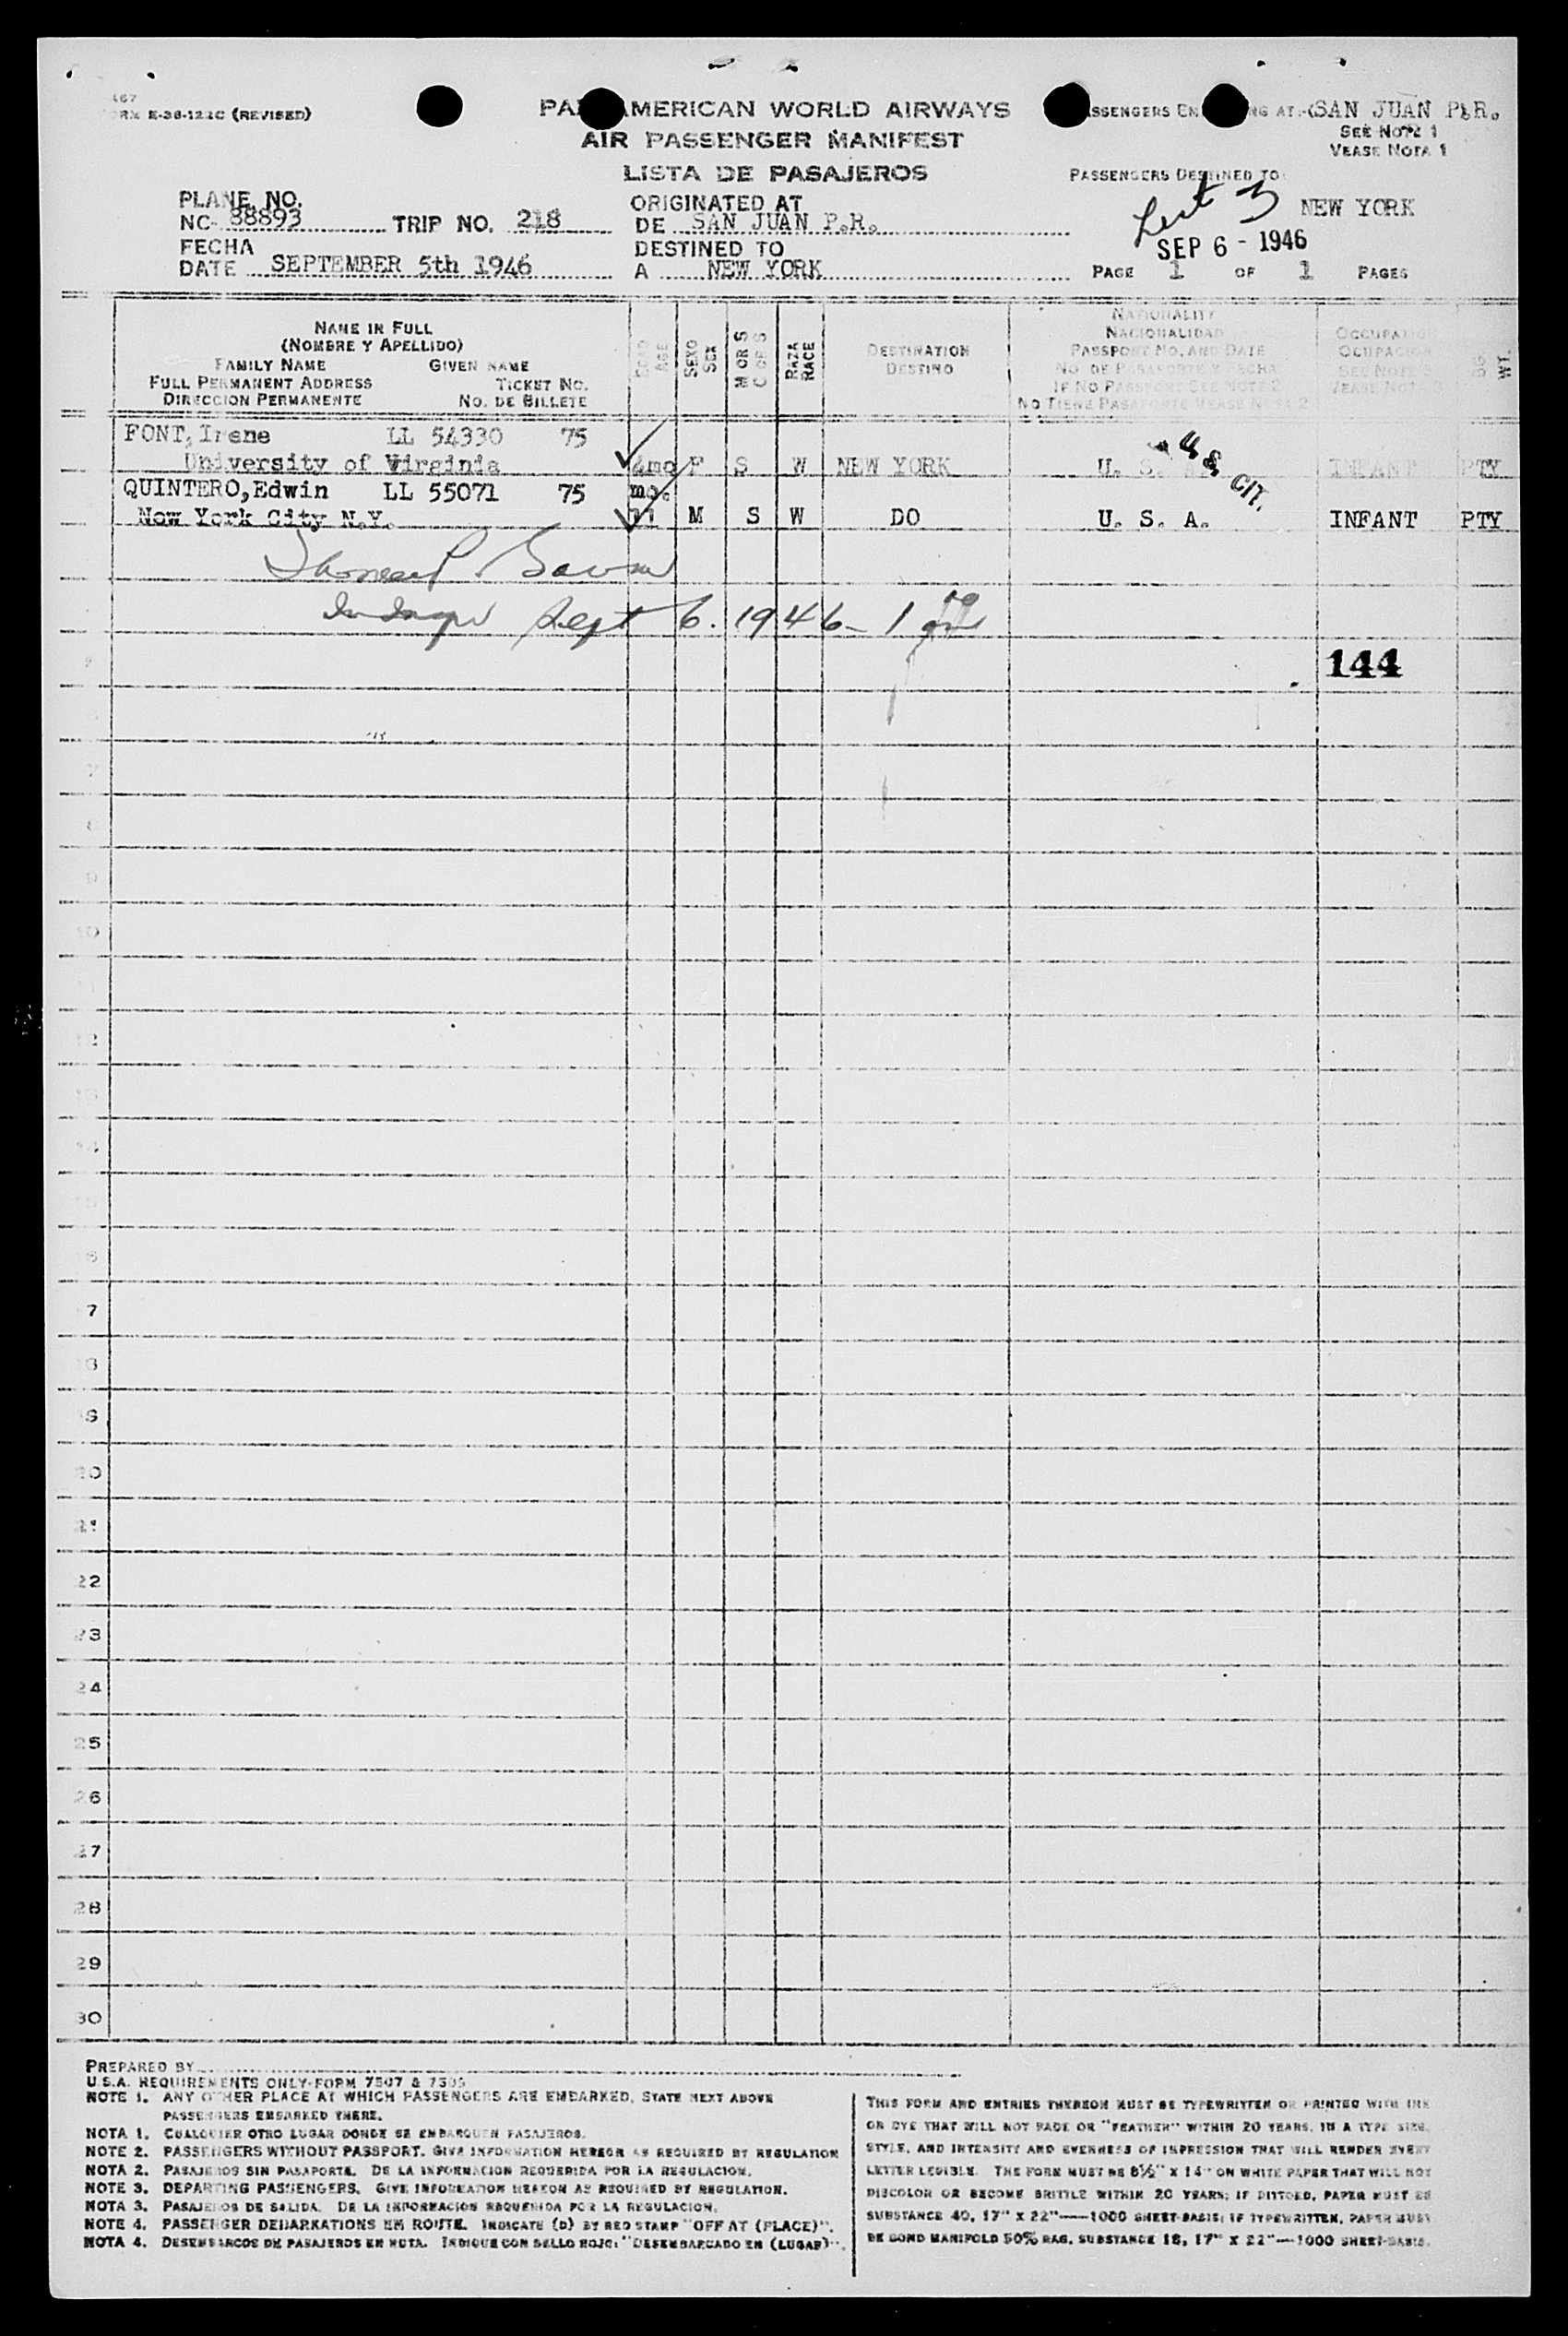 E-36-122C (REVISED)
PAN AMERICAN WORLD AIRWAYS
AIR PASSENGER MANIFEST
LISTA DE PASAJEROS
AT: SAN JUAN P.R.
SEE NOTE 1
VEASE NOTA 1
PASSENGERS DESTINED TO
NEW YORK
SEP 6 - 1946
PAGE 1 OF 1 PAGES
PLANE NO.
NC- 88893 TRIP NO. 218
FECHA
DATE SEPTEMBER 5th 1946
ORIGINATED AT
DE SAN JUAN P.R.
DESTINED TO
A NEW YORK
NAME IN FULL
(NOMBRE Y APELLIDO)
FAMILY NAME GIVEN NAME
FULL PERMANENT ADDRESS TICKET NO.
DIRECCION PERMANENTE NO. DE BILLETE
EDAD
AGE
SEXO
SEX
M OR S
C OR S
RAZA
RACE
DESTINATION
DESTINO
NATIONALITY
NACIONALIDAD
PASSPORT NO. AND DATE
NO. DE PASAPORTE Y FECHA
IF NO PASSPORT SEE NOTE 2
NO TIENE PASAPORTE VEASE NOTA 2
WT.
FONT, Irene LL 54330 75
University of Virginia 4mo F S W NEW YORK U. S. INFANT PTY
US CIT.
QUINTERO, Edwin LL 55071 75 mo.
New York City N.Y. 11 M S W DO U. S. A. INFANT PTY
Sept 6. 1946 - 1
144
7
8
9
10
12
17
20
22
23
24
25
26
27
28
29
30
PREPARED BY
U.S.A. REQUIREMENTS ONLY-FORM 7507 &
NOTE 1. ANY OTHER PLACE AT WHICH PASSENGERS ARE EMBARKED, STATE NEXT ABOVE
PASSENGERS EMBARKED THERE.
NOTA 1. CUALQUIER OTRO LUGAR DONDE SE EMBARQUEN PASAJEROS.
NOTE 2. PASSENGERS WITHOUT PASSPORT. GIVE INFORMATION HEREON AS REQUIRED BY REGULATION
NOTA 2. PASAJEROS SIN PASAPORTE. DE LA INFORMACION REQUERIDA POR LA REGULACION.
NOTE 3. DEPARTING PASSENGERS. GIVE INFORMATION HEREON AS REQUIRED BY REGULATION.
NOTA 3. PASAJEROS DE SALIDA. DE LA INFORMACION REQUERIDA POR LA REGULACION.
NOTE 4. PASSENGER DEBARKATIONS EN ROUTE. INDICATE (D) BY RED STAMP "OFF AT (PLACE)".
NOTA 4. DESEMBARCOS DE PASAJEROS EN RUTA. INDIQUE CON SELLO ROJO: "DESEMBARCADO EN (LUGAR)".
THIS FORM AND ENTRIES THEREON MUST BE TYPEWRITTEN OR PRINTED WITH INK
OR DYE THAT WILL NOT FADE OR "FEATHER" WITHIN 20 YEARS, IN A TYPE SIZE,
STYLE, AND INTENSITY AND EVENNESS OF IMPRESSION THAT WILL RENDER EVERY
LETTER LEGIBLE. THE FORM MUST BE 8½" X 14" ON WHITE PAPER THAT WILL NOT
DISCOLOR OR BECOME BRITTLE WITHIN 20 YEARS; IF DITTOED, PAPER MUST BE
SUBSTANCE 40, 17" X 22"—1000 SHEET-BASIS; IF TYPEWRITTEN, PAPER MUST
BE BOND MANIFOLD 50% RAG, SUBSTANCE 18, 17" X 22"—1000 SHEET-BASIS.